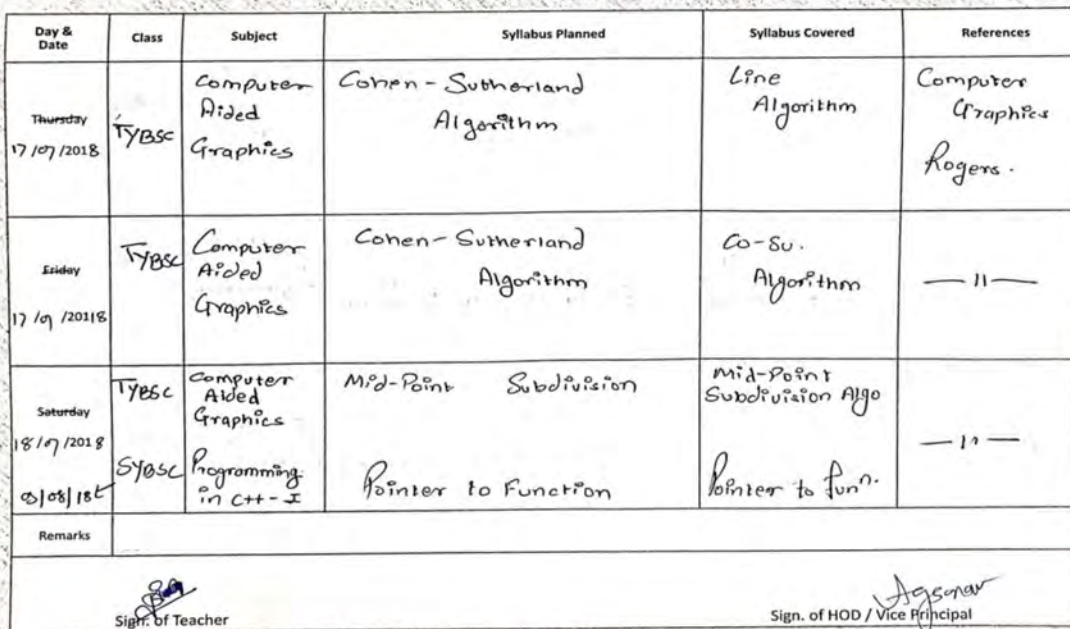 Day & Date Class Subject Syllabus Planned Syllabus Covered References
Thursday
17/07/2018
TYBSC
Computer
Aided
Graphics
Cohen-Sutherland
Algorithm
Line
Algorithm
Computer
Graphics
Rogers.
Friday
17/07/20118
TYBSC
Computer
Aided
Graphics
Cohen-Sutherland
Algorithm
Co-Su.
Algorithm
—11—
Saturday
18/07/2018
TYBSC
Computer
Aided
Graphics
Mid-Point Subdivision
Mid-Point
Subdivision Algo
—11—
03/08/18
SYBSC
Programming
in C++-I
Pointer to Function
Pointer to funⁿ.
Remarks
Sign. of Teacher
Sign. of HOD / Vice Principal